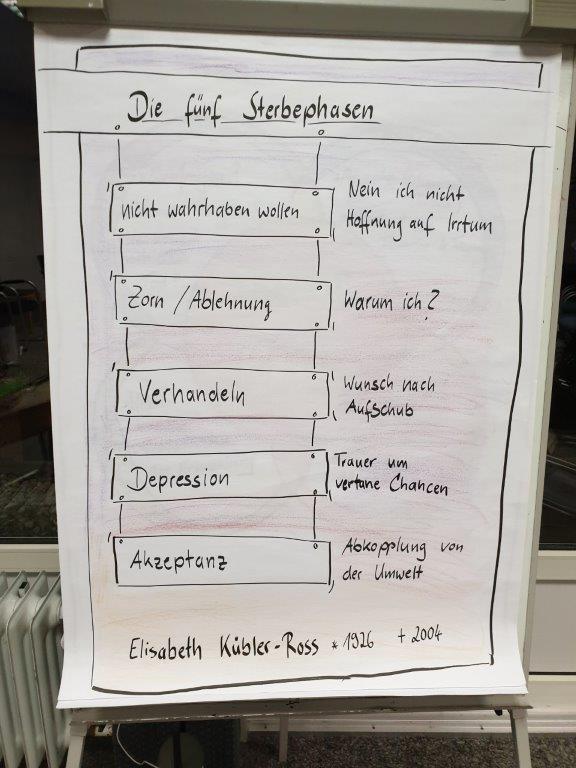 Die fünf Sterbephasen
nicht wahrhaben wollen
Nein ich nicht
Hoffnung auf Irrtum
Zorn / Ablehnung
Warum ich?
Verhandeln
Wunsch nach
Aufschub
Depression
Trauer um
vertane Chancen
Akzeptanz
Abkopplung von
der Umwelt
Elisabeth Kübler-Ross * 1926 + 2004